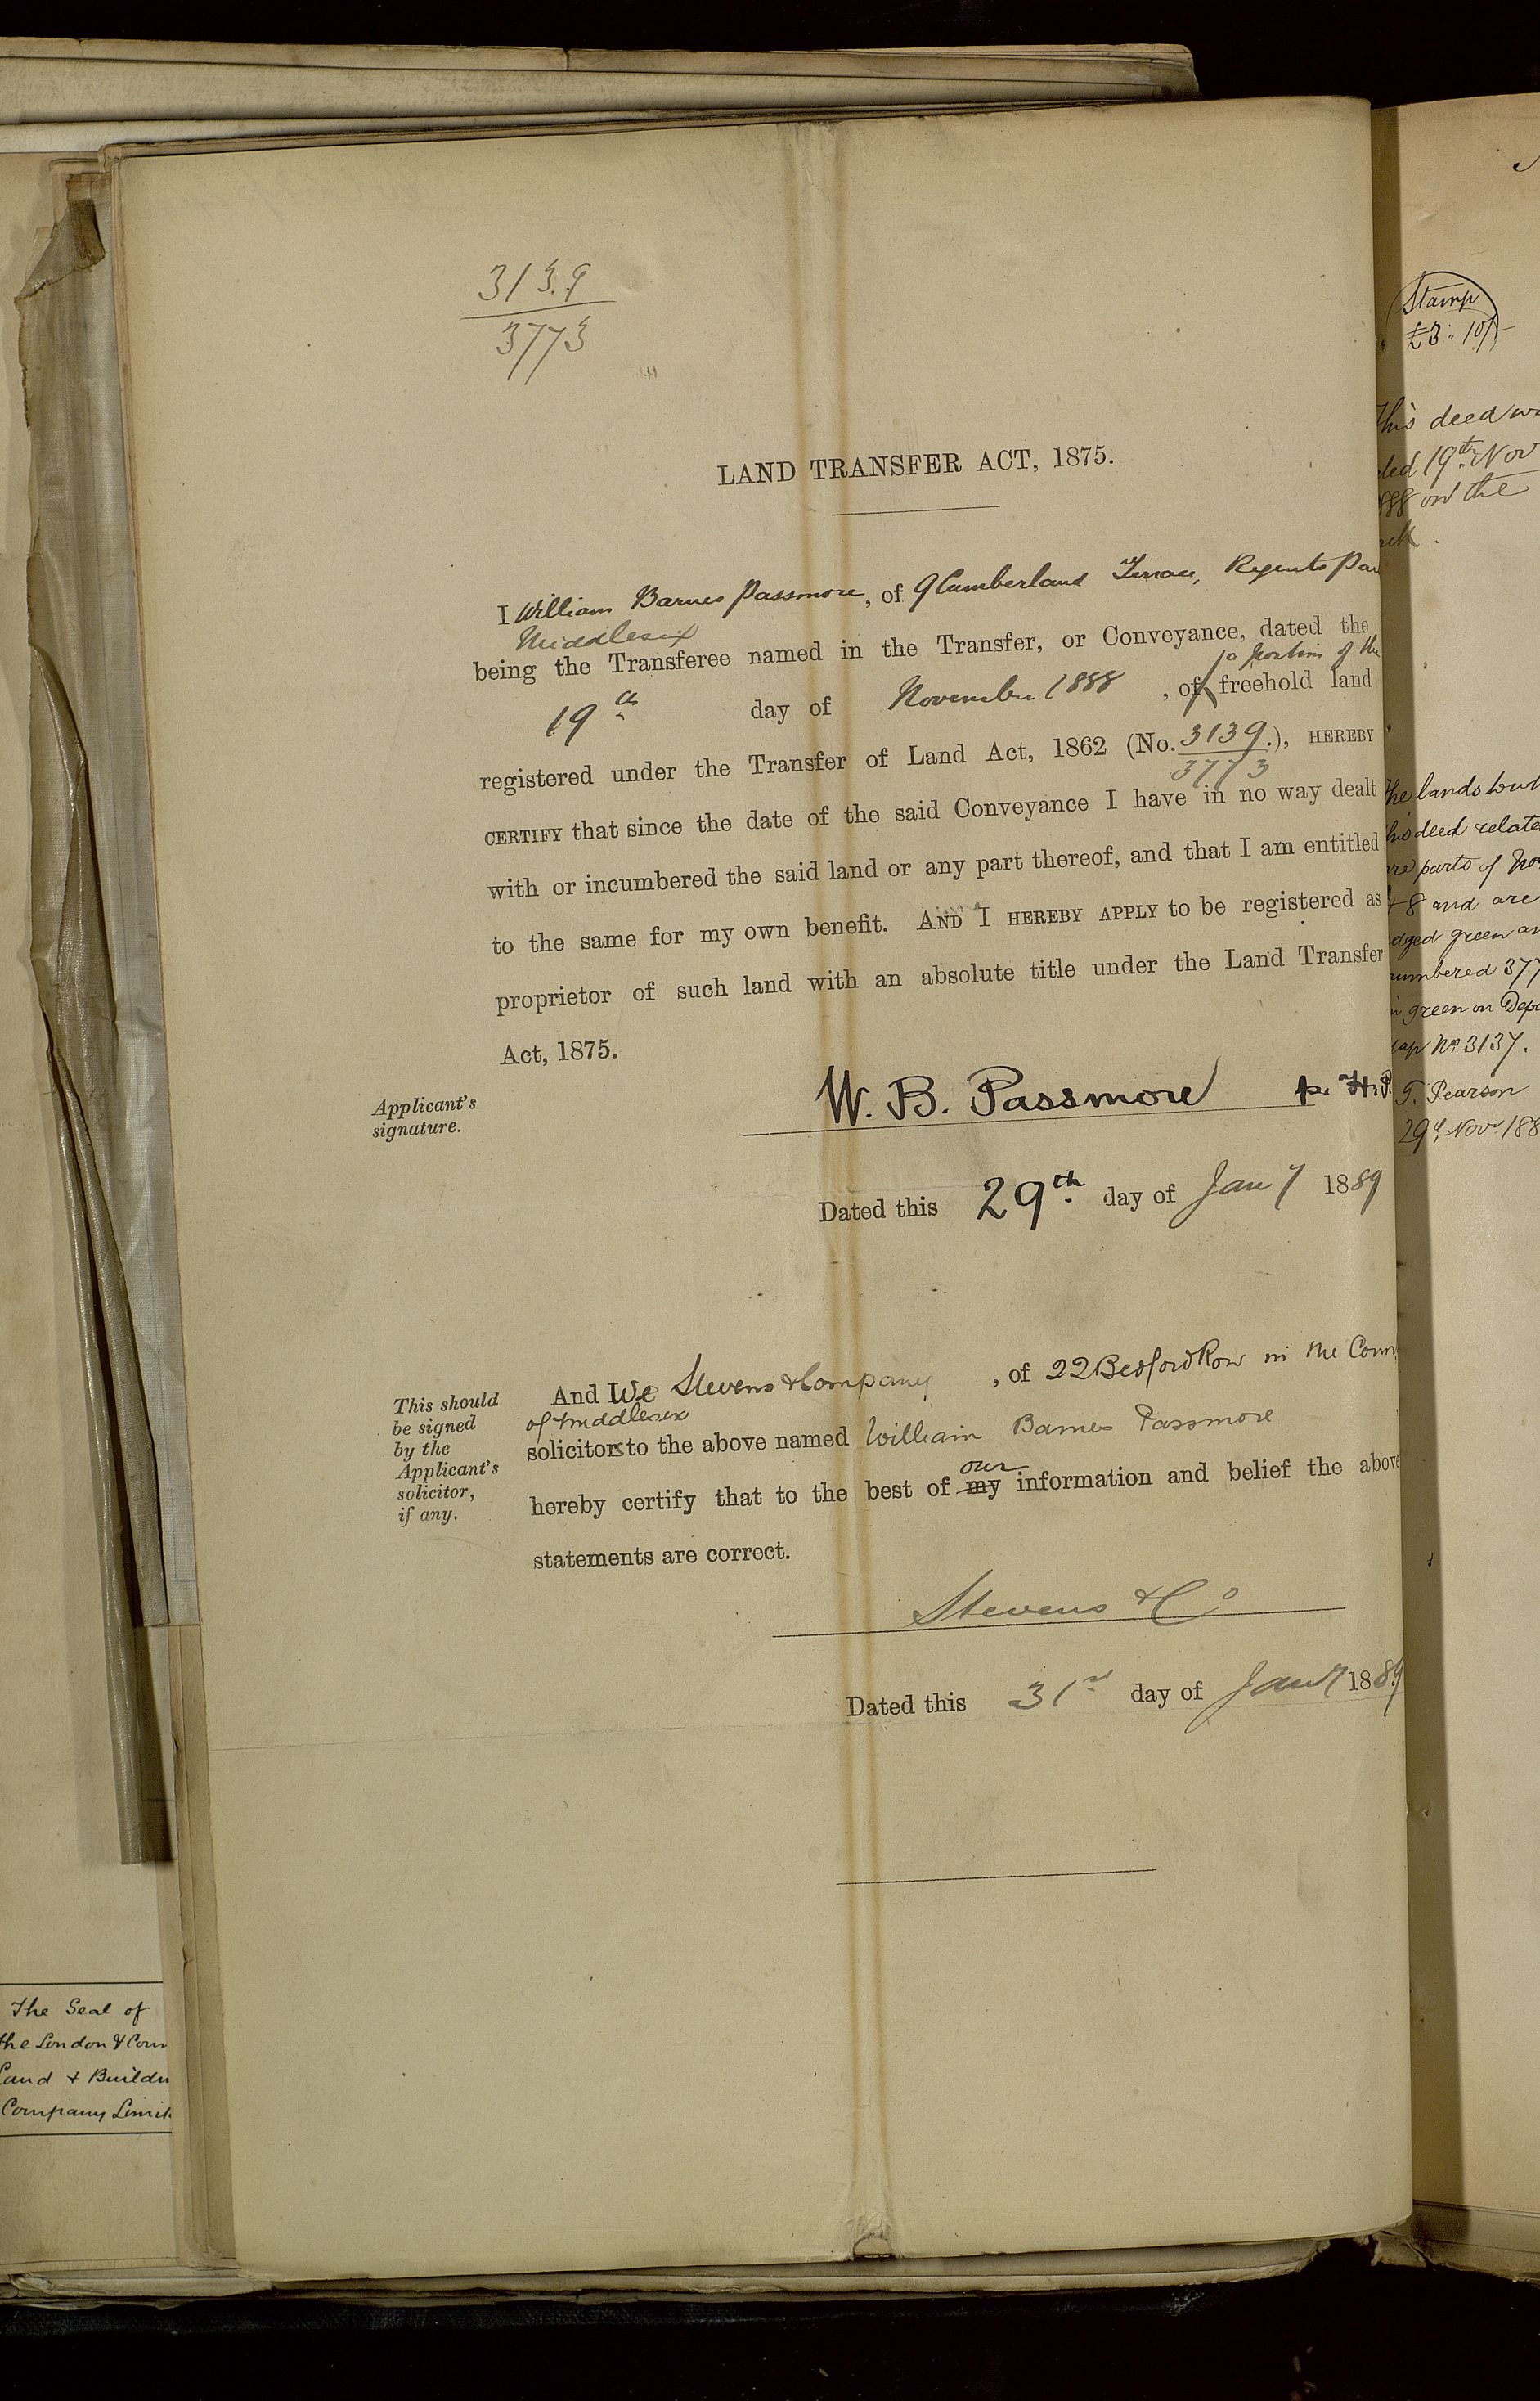 3139
3773
LAND TRANSFER ACT, 1875.
I William Barnes Passmore, of 9 Cumberland Terrace, Regents Par
Middlesex
being the Transferee named in the Transfer, or Conveyance, dated the
a portion of the
19th day of November 1888, of freehold land
registered under the Transfer of Land Act, 1862 (No. 3139.), HEREBY
3773
CERTIFY that since the date of the said Conveyance I have in no way dealt
with or incumbered the said land or any part thereof, and that I am entitled
to the same for my own benefit. AND I HEREBY APPLY to be registered as
proprietor of such land with an absolute title under the Land Transfer
Act, 1875.
Applicant's
signature.
W. B. Passmore p. H.P.
Dated this 29th day of Jany 1889
This should
be signed
by the
Applicant's
solicitor,
if any.
And We Stevens & Company, of 22 Bedford Row in the Coun
of Middlesex
solicitors to the above named William Barnes Passmore
our
hereby certify that to the best of my information and belief the above
statements are correct.
Stevens & Co
Dated this 31st day of Jany 1889
The Seal of
the London & Coun
Land & Buildin
Company Limit
Stamp
£3: 10/-
This deed wa
ted 19th Nov
888 on the
ack.
The lands to wh
this deed relate
are parts of Nos
& 8 and are
edged green an
numbered 377
in green on Depo
Map No 3137.
T. Pearson
29th Novr 188